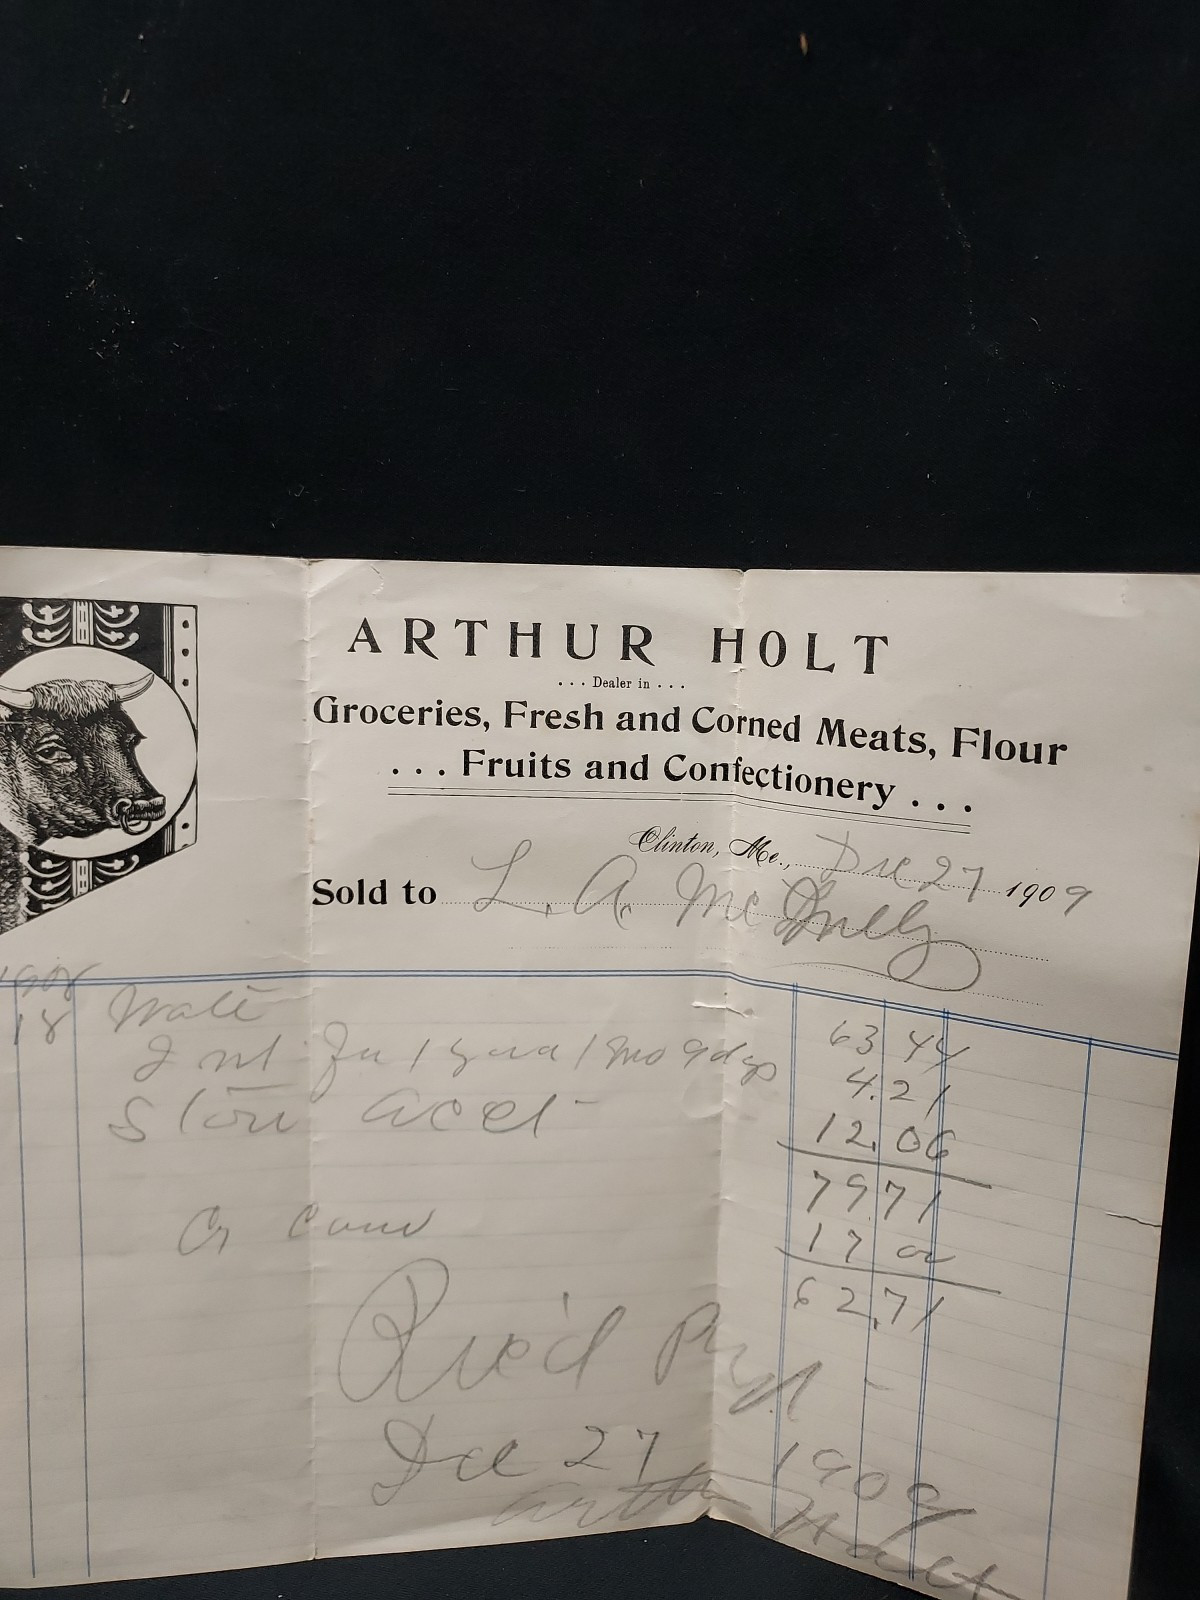 ARTHUR HOLT
... Dealer in ...
Groceries, Fresh and Corned Meats, Flour
... Fruits and Confectionery ...
Clinton, Me., Dec 27 1909
Sold to L. A. Mc
1908
18 Note 63 44
Int For 1 year 1 mo 9 dys 4.21
Store acct 12.06
79.71
Cr 17 00
62.71
Rec'd Payt -
Dec 27 1909
Arthur Holt